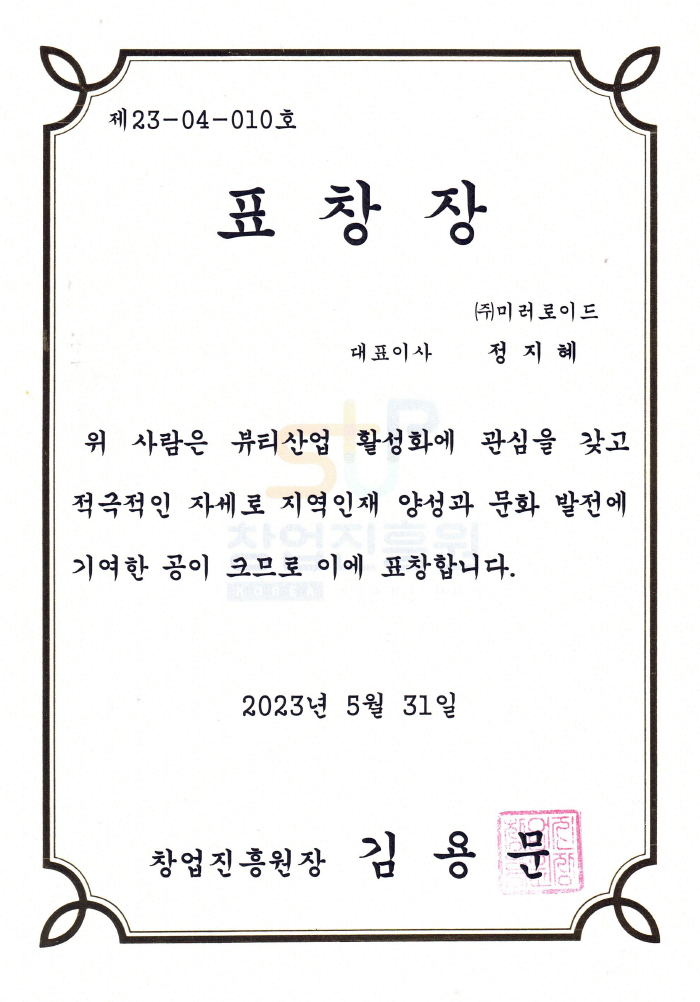 제23-04-010호
표 창 장
㈜미러로이드
대표이사 정 지 혜
위 사람은 뷰티산업 활성화에 관심을 갖고
적극적인 자세로 지역인재 양성과 문화 발전에
기여한 공이 크므로 이에 표창합니다.
창업진흥원
KOREA
2023년 5월 31일
창업진흥원장 김 용 문